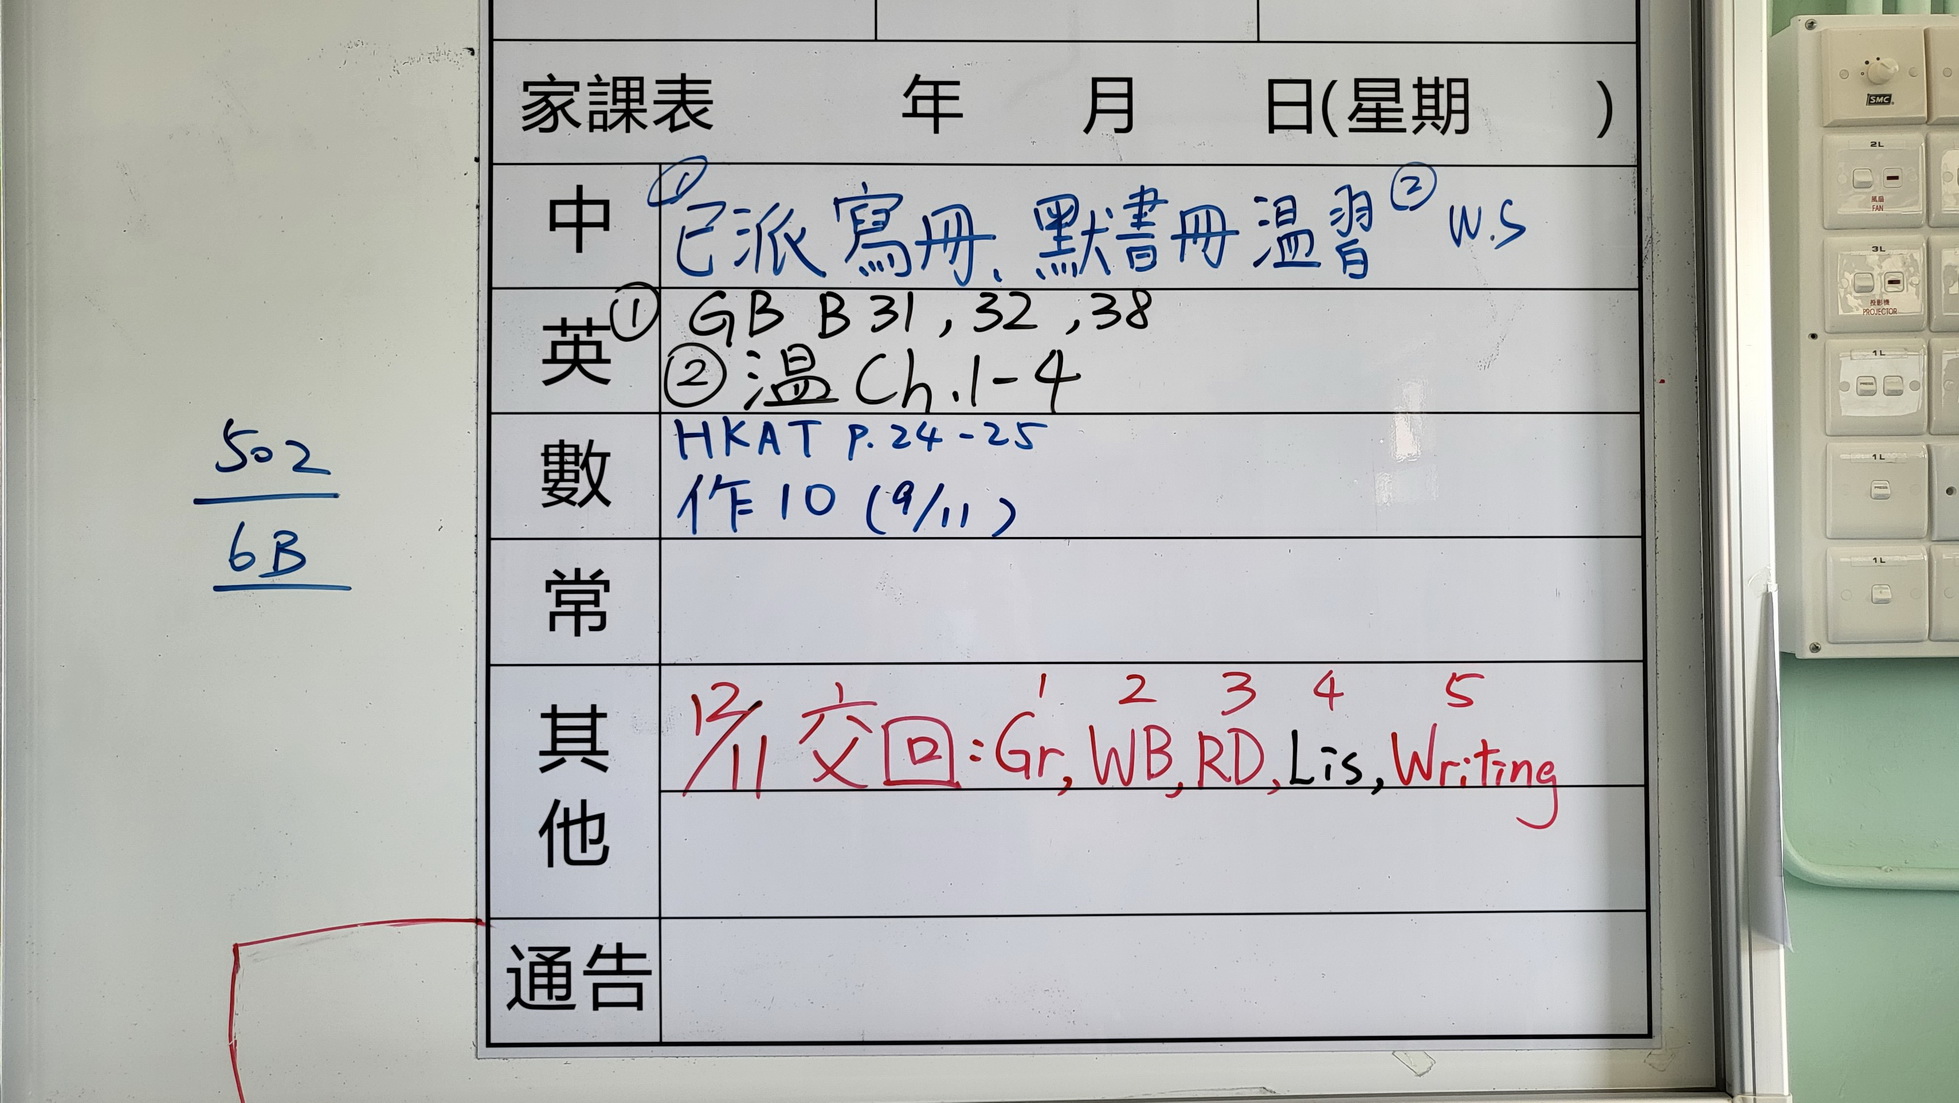 家課表 年 月 日(星期 )
中 ①已派寫冊、默書冊温習 ② W.S
英 ① GB B31, 32, 38
② 温 Ch.1-4
數 HKAT P.24-25
作10 (9/11)
常
1 2 3 4 5
其他 12/11 交回:Gr, WB, RD, Lis, Writing
通告
502
6B
SMC
2L
風扇
FAN
3L
投影機
PROJECTOR
1L
PRESS
1L
PRESS
1L